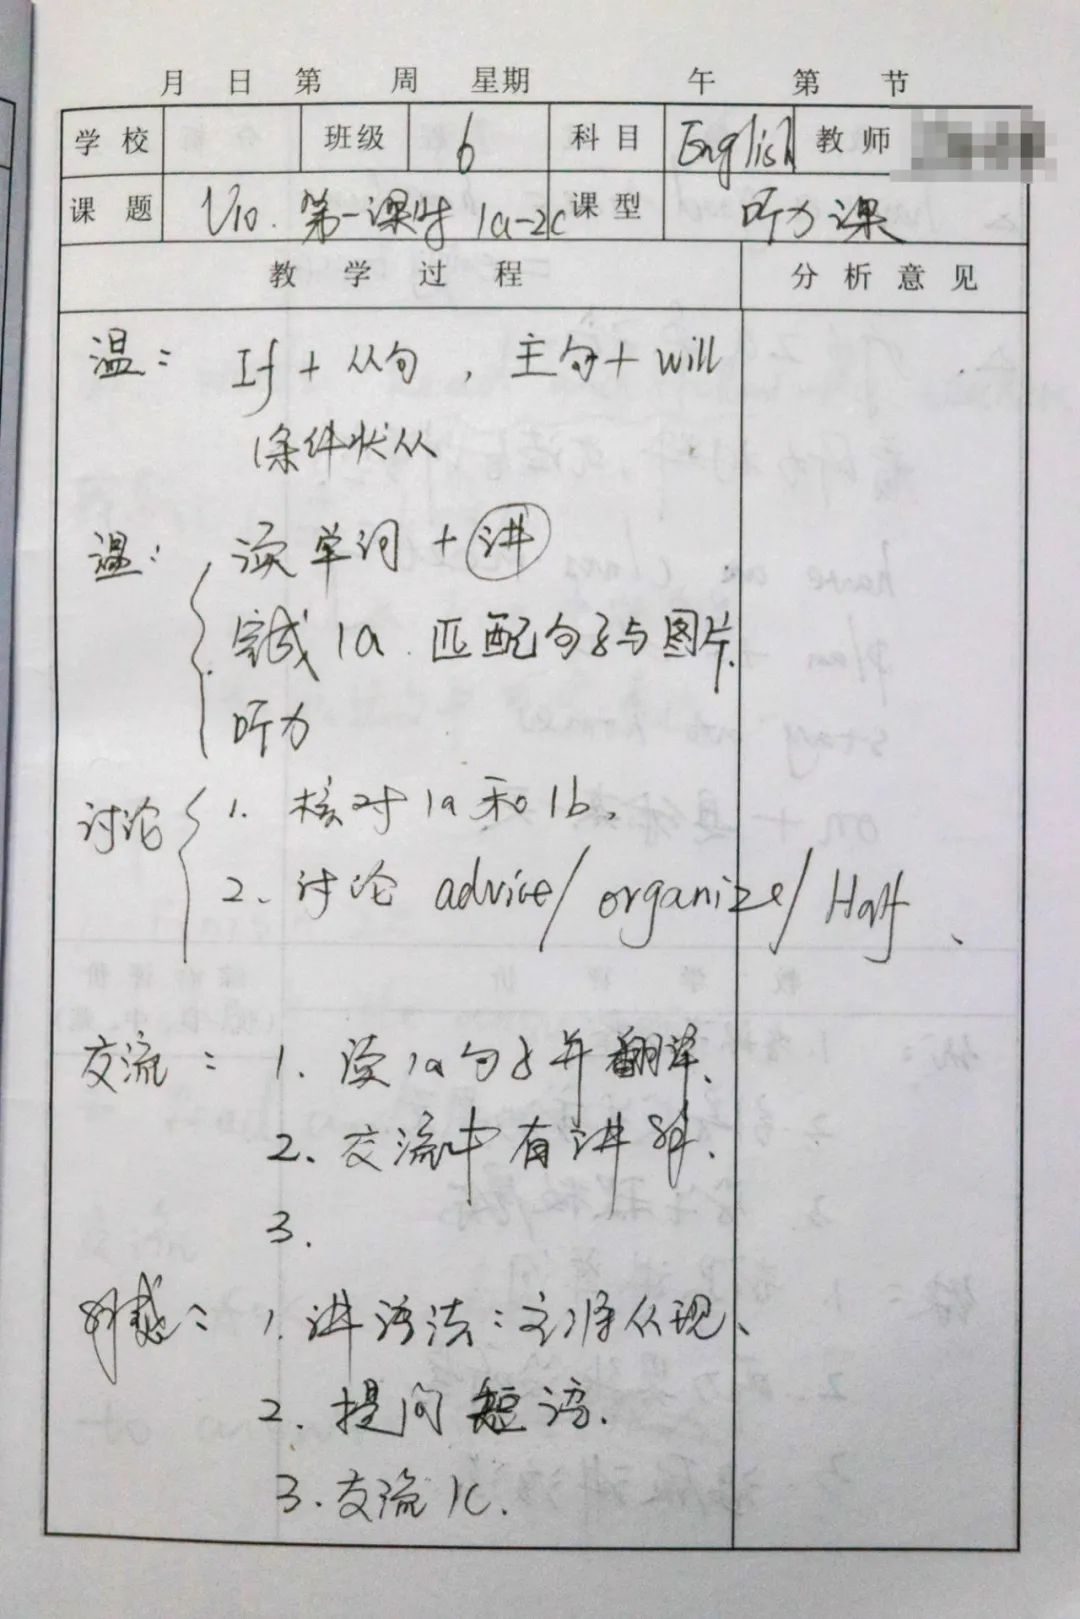 月 日 第 周 星期 午 第 节
学校 班级 6 科目 English 教师
课题 U10. 第一课时 1a-2c 课型 听力课
教学过程 分析意见
温: If + 从句, 主句 + will
条件状从
温: 读单词 + 讲
完成 1a 匹配句子与图片.
听力
讨论 1. 核对 1a 和 1b.
2、讨论 advice/ organize/ Half、
交流: 1. 读 1a 句子并翻译.
2、交流中有讲解.
3.
1. 讲语法: 主将从现、
2. 提问短语.
3. 交流 1c.